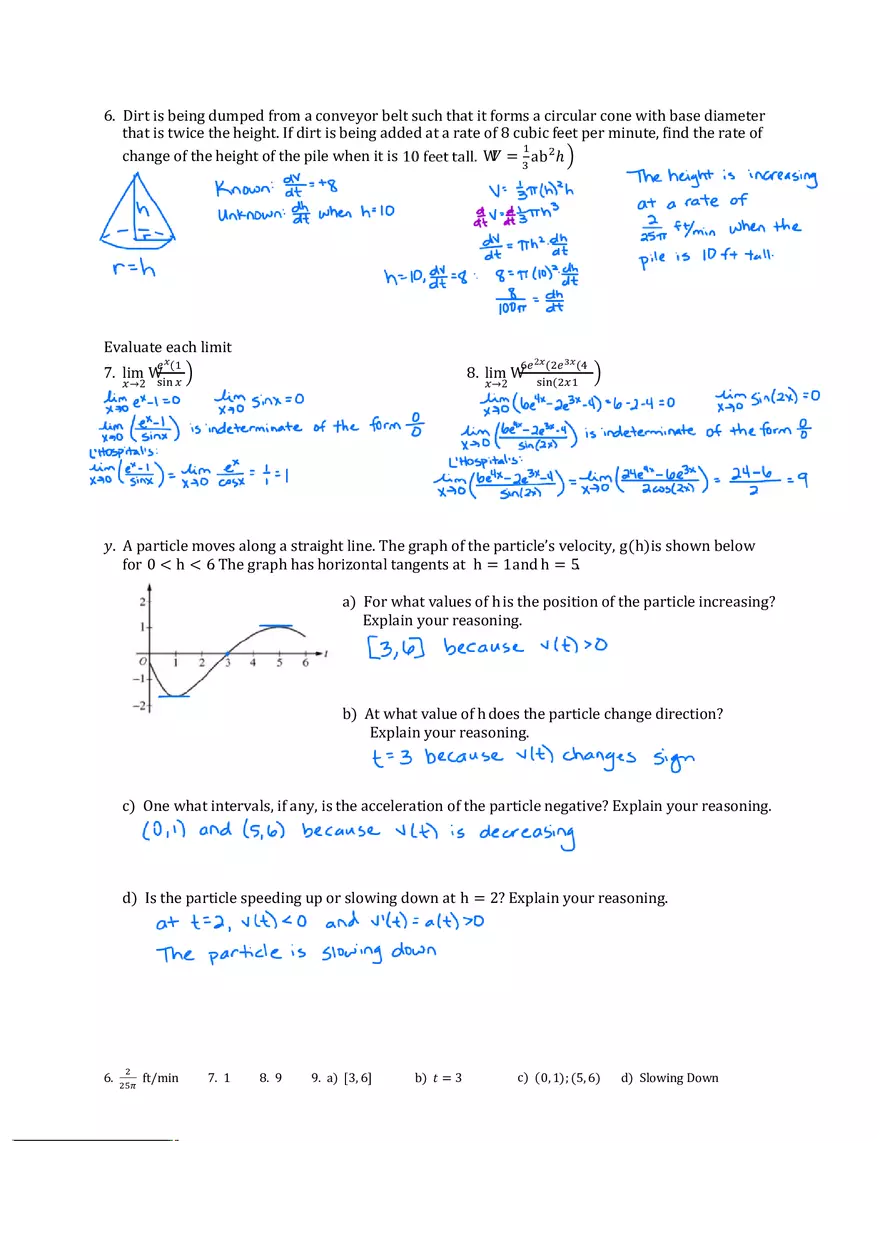 6. Dirt is being dumped from a conveyor belt such that it forms a circular cone with base diameter
that is twice the height. If dirt is being added at a rate of 8 cubic feet per minute, find the rate of
change of the height of the pile when it is 10 feet tall. W V = 1/3 ab²h )
h
r
r=h
Known: dV/dt = +8
Unknown: dh/dt when h=10
V= 1/3 π(h)²h
d/dt V = d/dt 1/3 πh³
dV/dt = πh² · dh/dt
h=10, dV/dt =8 : 8=π(10)² · dh/dt
8/100π = dh/dt
The height is increasing
at a rate of
2/25π ft/min when the
pile is 10 ft tall.
Evaluate each limit
7. lim x→2 W eˣ(1 / sin x )
lim x→0 eˣ-1=0 lim x→0 sinx=0
lim x→0 (eˣ-1 / sinx) is indeterminate of the form 0/0
L'Hospital's:
lim x→0 (eˣ-1 / sinx) = lim x→0 eˣ/cosx = 1/1 = 1
8. lim x→2 W 6e²ˣ(2e³ˣ(4 / sin(2x1 )
lim x→0 (6e⁴ˣ-2e³ˣ-4)=6-2-4=0 lim x→0 sin(2x)=0
lim x→0 (6e⁴ˣ-2e³ˣ-4 / sin(2x)) is indeterminate of the form 0/0
L'Hospital's:
lim x→0 (6e⁴ˣ-2e³ˣ-4 / sin(2x)) = lim x→0 (24e⁴ˣ-6e³ˣ / 2cos(2x)) = 24-6 / 2 = 9
y. A particle moves along a straight line. The graph of the particle’s velocity, g(h)is shown below
for 0 < h < 6 The graph has horizontal tangents at h = 1and h = 5.
2
1
O 1 2 3 4 5 6 t
−1
−2
a) For what values of h is the position of the particle increasing?
Explain your reasoning.
[3,6] because v(t)>0
b) At what value of h does the particle change direction?
Explain your reasoning.
t=3 because v(t) changes sign
c) One what intervals, if any, is the acceleration of the particle negative? Explain your reasoning.
(0,1) and (5,6) because v(t) is decreasing
d) Is the particle speeding up or slowing down at h = 2? Explain your reasoning.
at t=2, v(t)<0 and v'(t)=a(t)>0
The particle is slowing down
6. 2/25π ft/min 7. 1 8. 9 9. a) [3, 6] b) t = 3 c) (0, 1); (5, 6) d) Slowing Down